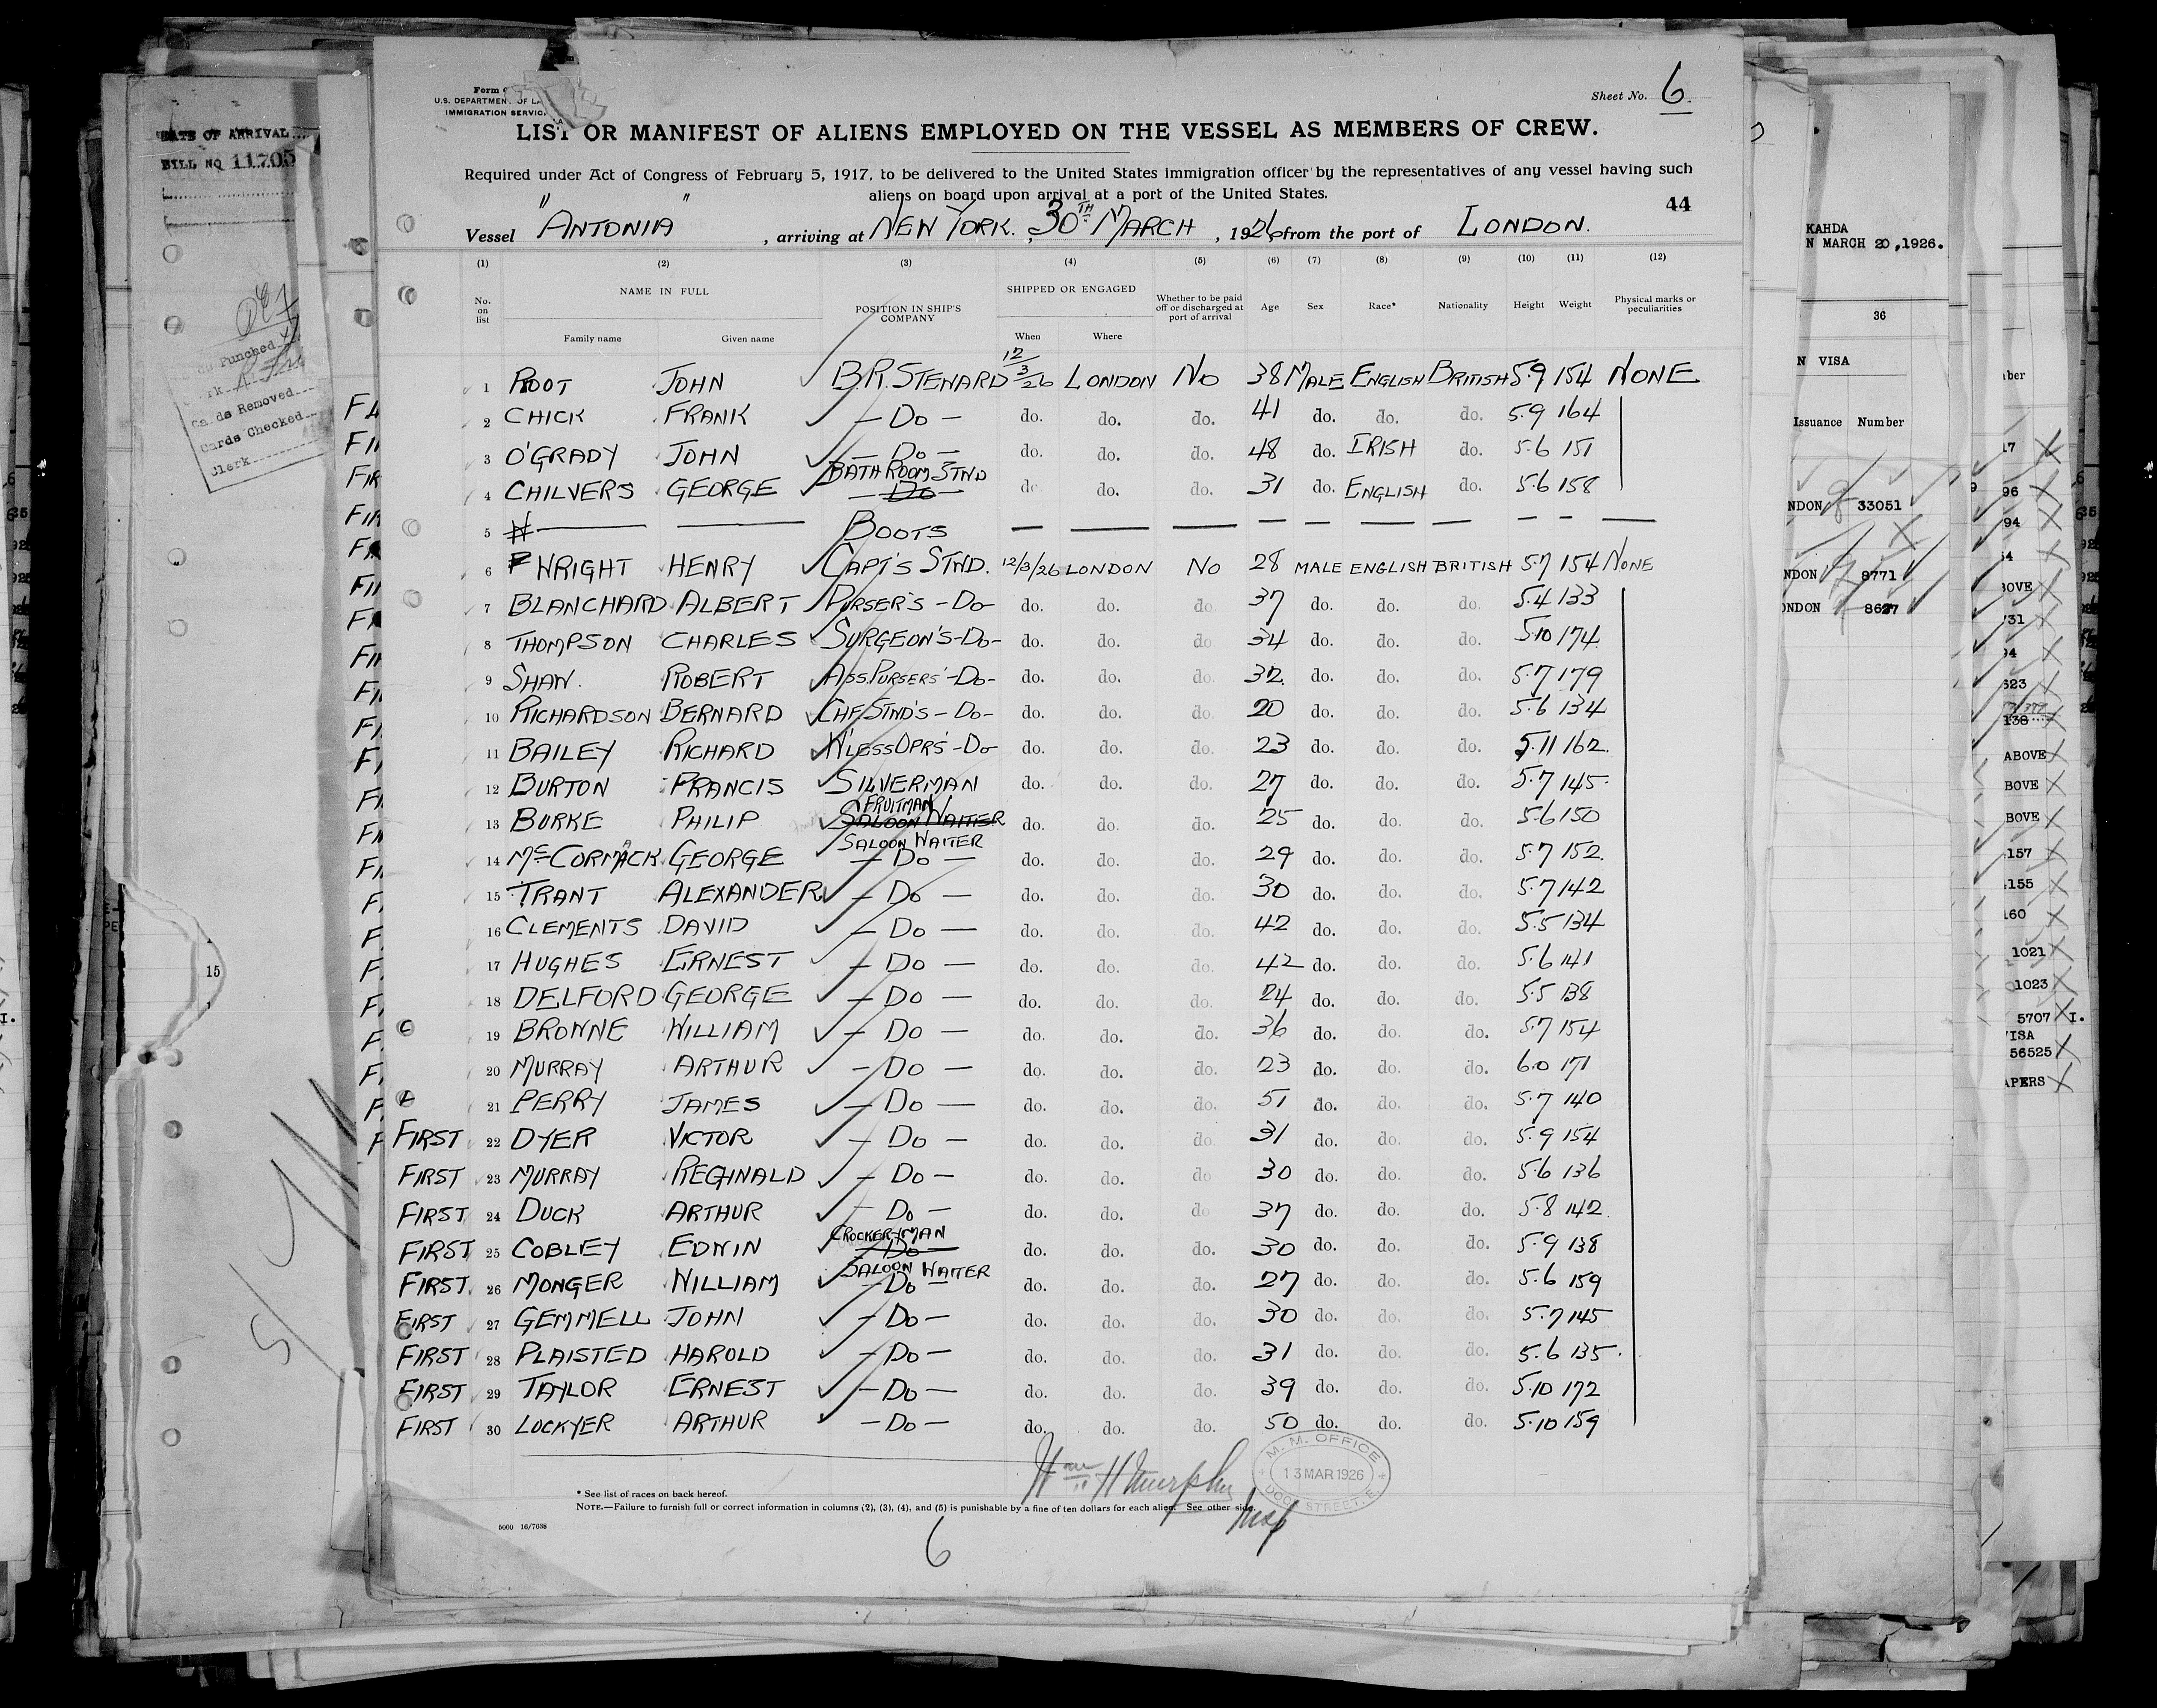 Sheet No. 6.
U.S. DEPARTMENT OF LA
IMMIGRATION SERVICE
LIST OR MANIFEST OF ALIENS EMPLOYED ON THE VESSEL AS MEMBERS OF CREW.
Required under Act of Congress of February 5, 1917, to be delivered to the United States immigration officer by the representatives of any vessel having such
aliens on board upon arrival at a port of the United States.
44
Vessel "ANTONIA", arriving at NEW YORK. 30TH MARCH, 1926, from the port of LONDON.
(1) (2) (3) (4) (5) (6) (7) (8) (9) (10) (11) (12)
No. on list NAME IN FULL Family name Given name POSITION IN SHIP'S COMPANY SHIPPED OR ENGAGED When Where Whether to be paid off or discharged at port of arrival Age Sex Race* Nationality Height Weight Physical marks or peculiarities
1 ROOT JOHN B.R. STEWARD 12/3/26 LONDON NO 38 MALE ENGLISH BRITISH 5.9 154 NONE
2 CHICK FRANK — DO — do. do. do. 41 do. do. do. 5.9 164
3 O'GRADY JOHN — DO — do. do. do. 48 do. IRISH do. 5.6 151
4 CHILVERS GEORGE BATH ROOM STWD — DO — do. do. do. 31 do. ENGLISH do. 5.6 158
5 — — BOOTS — — — — — — — — — —
6 WRIGHT HENRY CAPT'S STWD. 12/3/26 LONDON NO 28 MALE ENGLISH BRITISH 5.7 154 NONE
7 BLANCHARD ALBERT PURSER'S - DO - do. do. do. 37 do. do. do. 5.4 133
8 THOMPSON CHARLES SURGEON'S - DO - do. do. do. 34 do. do. do. 5.10 174
9 SHAW. ROBERT ASS. PURSERS' - DO - do. do. do. 32 do. do. do. 5.7 179
10 RICHARDSON BERNARD CHF STWD'S - DO - do. do. do. 20 do. do. do. 5.6 134
11 BAILEY RICHARD W'LESS OPRS' - DO do. do. do. 23 do. do. do. 5.11 162.
12 BURTON FRANCIS SILVERMAN do. do. do. 27 do. do. do. 5.7 145
13 BURKE PHILIP FRUITMAN SALOON WAITER do. do. do. 25 do. do. do. 5.6 150
14 McCORMACK GEORGE SALOON WAITER — DO — do. do. do. 29 do. do. do. 5.7 152.
15 TRANT ALEXANDER — DO — do. do. do. 30 do. do. do. 5.7 142
16 CLEMENTS DAVID — DO — do. do. do. 42 do. do. do. 5.5 134
17 HUGHES ERNEST — DO — do. do. do. 42 do. do. do. 5.6 141
18 DELFORD GEORGE — DO — do. do. do. 24 do. do. do. 5.5 138
19 BROWNE WILLIAM — DO — do. do. do. 36 do. do. do. 5.7 154
20 MURRAY ARTHUR — DO — do. do. do. 23 do. do. do. 6.0 171
21 PERRY JAMES — DO — do. do. do. 51 do. do. do. 5.7 140
FIRST 22 DYER VICTOR — DO — do. do. do. 31 do. do. do. 5.9 154
FIRST 23 MURRAY REGINALD — DO — do. do. do 30 do. do. do. 5.6 136
FIRST 24 DUCK ARTHUR — DO — do. do. do 37 do. do. do. 5.8 142.
FIRST 25 COBLEY EDWIN CROCKERYMAN — DO — do. do. do. 30 do. do. do. 5.9 138
FIRST 26 MONGER WILLIAM SALOON WAITER — DO — do. do. do. 27 do. do. do. 5.6 159
FIRST 27 GEMMELL JOHN — DO — do. do. do. 30 do. do. do. 5.7 145
FIRST 28 PLAISTED HAROLD — DO — do. do. do. 31 do. do. do. 5.6 135.
FIRST 29 TAYLOR ERNEST — DO — do. do. do. 39 do. do. do. 5.10 172
FIRST 30 LOCKYER ARTHUR — DO — do. do. do. 50 do. do. do. 5.10 159
Wm H Murphy
Insp
M. M. OFFICE
13 MAR 1926
DOCK STREET. E.
* See list of races on back hereof.
NOTE.—Failure to furnish full or correct information in columns (2), (3), (4), and (5) is punishable by a fine of ten dollars for each alien. See other side.
5000 16/7638
6
DATE OF ARRIVAL
BILL NO 11705
Punched
Cards Removed
Cards Checked
Clerk
15
KAHDA
N MARCH 20, 1926.
36
N VISA
Issuance Number
NDON 33051
NDON 8771
ONDON 8627
ABOVE
BOVE
BOVE
157
155
160
1021
1023
5707
VISA
56525
APERS